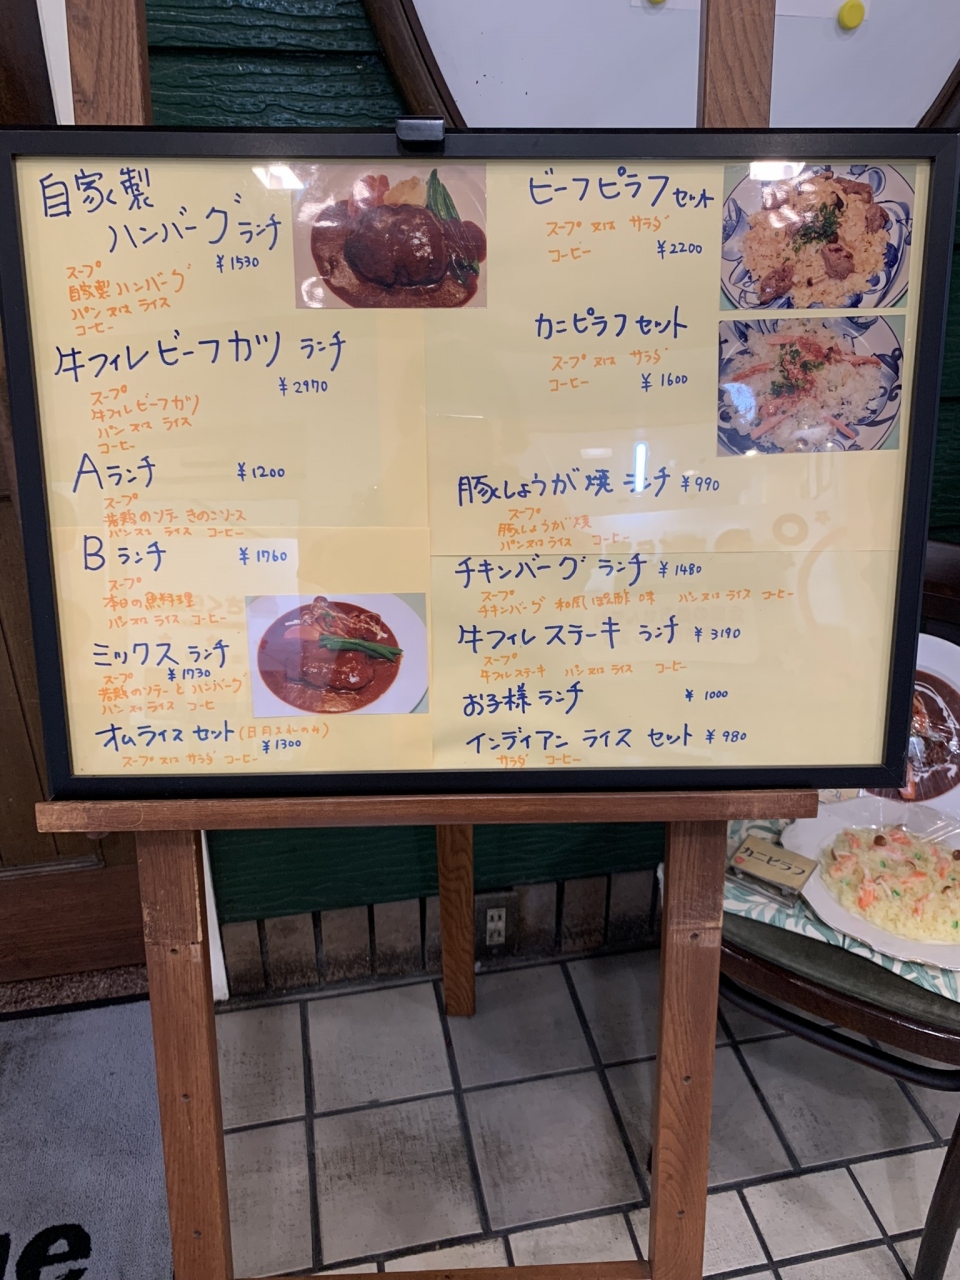 自家製
ハンバーグランチ
¥1530
スープ
自家製ハンバーグ
パン又はライス
コーヒー
牛フィレビーフカツ ランチ
¥2970
スープ
牛フィレビーフカツ
パン又は ライス
コーヒー
Aランチ ¥1200
スープ
若鶏のソテー きのこソース
パン又は ライス コーヒー
Bランチ ¥1760
スープ
本日の魚料理
パン又は ライス コーヒー
ミックスランチ
スープ ¥1730
若鶏のソテーと ハンバーグ
パン又はライス コーヒ
オムライスセット(日月火木のみ)
¥1300
スープ 又は サラダ コーヒー
ビーフピラフセット
スープ 又は サラダ
コーヒー ¥2200
カニピラフセット
スープ 又は サラダ
コーヒー ¥1600
豚しょうが焼ランチ ¥990
スープ
豚しょうが焼
パン又はライス コーヒー
チキンバーグ ランチ ¥1480
スープ
チキンバーグ 和風ぽん酢味 パン又はライス コーヒー
牛フィレ ステーキ ランチ ¥3190
スープ
牛フィレステーキ パン又はライス コーヒー
お子様ランチ ¥1000
インディアン ライス セット ¥980
サラダ コーヒー
カニピラフ
ue